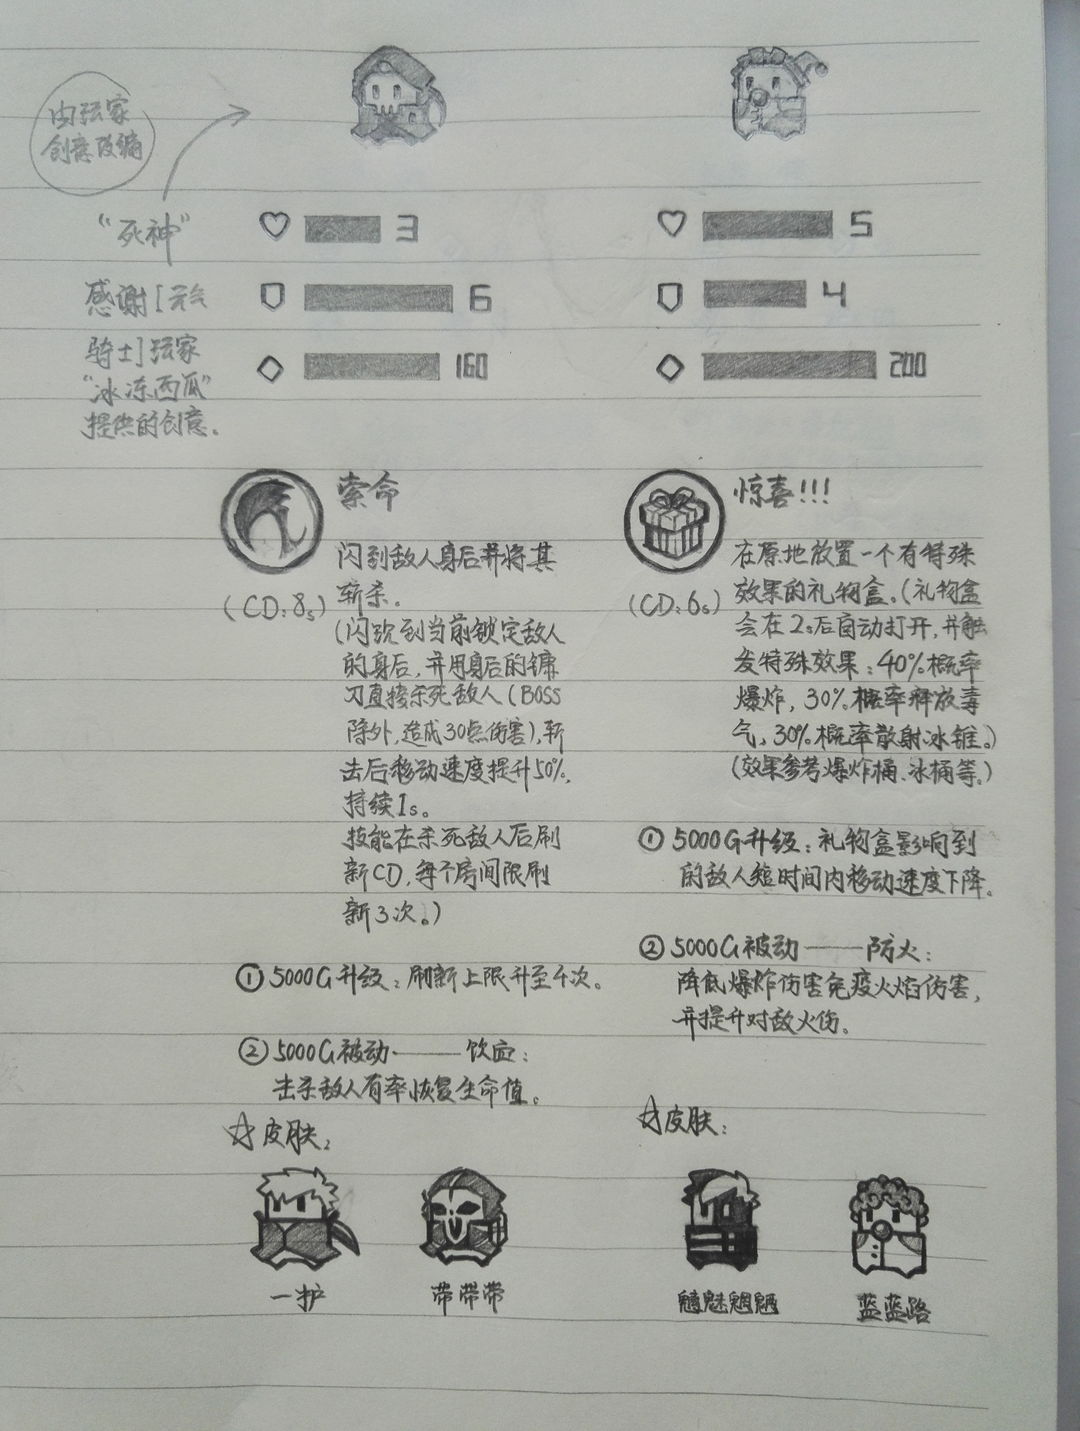 由玩家
创意改编
“死神”
感谢[元气
骑士]玩家
“冰冻西瓜”
提供的创意。
3
6
160
索命
(CD:8s)
闪到敌人身后并将其
斩杀.
(闪现到当前锁定敌人
的身后,并用身后的镰
刀直接杀死敌人(BOSS
除外,造成30点伤害),斩
击后移动速度提升50%,
持续1s。
技能在杀死敌人后刷
新CD,每个房间限刷
新3次。)
①5000G升级:刷新上限升至4次。
②5000G被动——饮血:
击杀敌人有率恢复生命值。
☆皮肤:
一护
带带带
5
4
200
惊喜!!!
(CD:6s)
在原地放置一个有特殊
效果的礼物盒。(礼物盒
会在2s后自动打开,并触
发特殊效果:40%概率
爆炸,30%概率释放毒
气,30%概率散射冰锥。)
(效果参考爆炸桶、冰桶等。)
①5000G升级:礼物盒影响到
的敌人短时间内移动速度下降。
②5000G被动——防火:
降低爆炸伤害免疫火焰伤害,
并提升对敌火伤。
☆皮肤:
魑魅魍魉
蓝蓝路